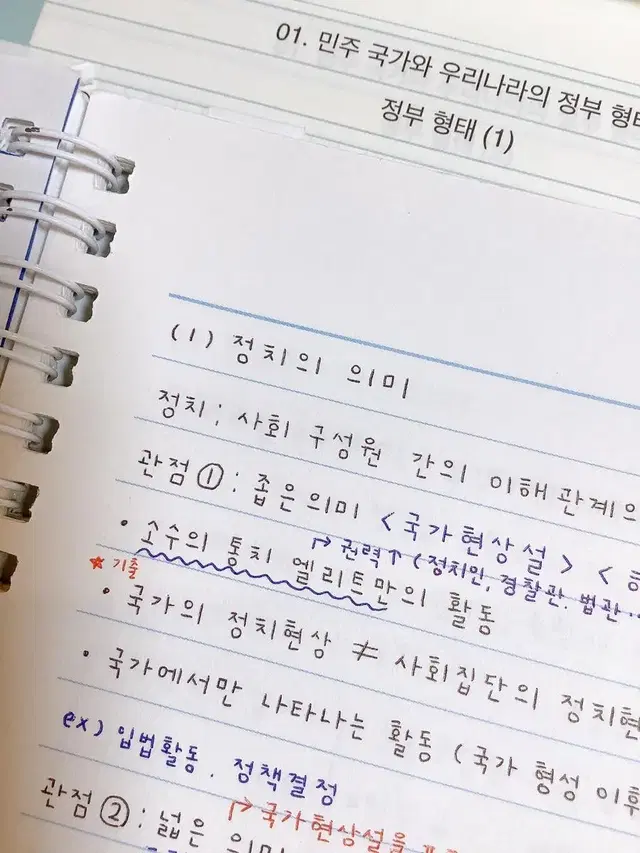 01. 민주 국가와 우리나라의 정부 형태
정부 형태 (1)
(1) 정치의 의미
정치 : 사회 구성원 간의 이해관계의
관점 ① : 좁은 의미 <국가현상설> <
↱ 권력↑ (정치인, 경찰관. 법관...
• 소수의 통치 엘리트만의 활동
★기출
• 국가의 정치현상 ≠ 사회집단의 정치현
• 국가에서만 나타나는 활동 (국가 형성 이후
ex) 입법활동. 정책결정
↱ 국가현상설을
관점 ② : 넓은 의미